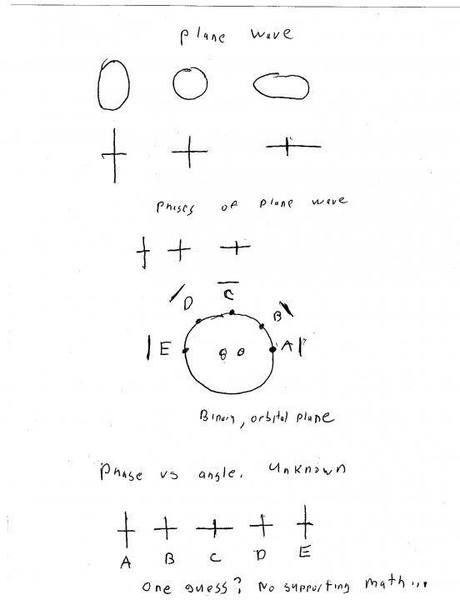 plane wave
Phases of plane wave
D C B
E A
Binary, orbital plane
Phase vs angle. Unknown
A B C D E
One guess? No supporting math...